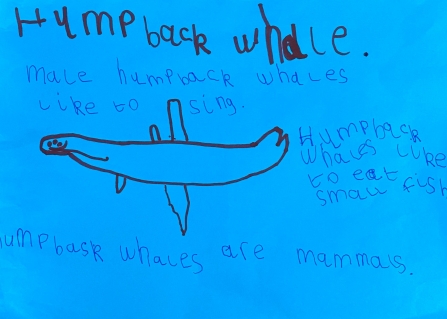 Humpback whale.
male humpback whales
like to sing.
Humpback
whales like
to eat
small fish
umpbask whales are mammals.